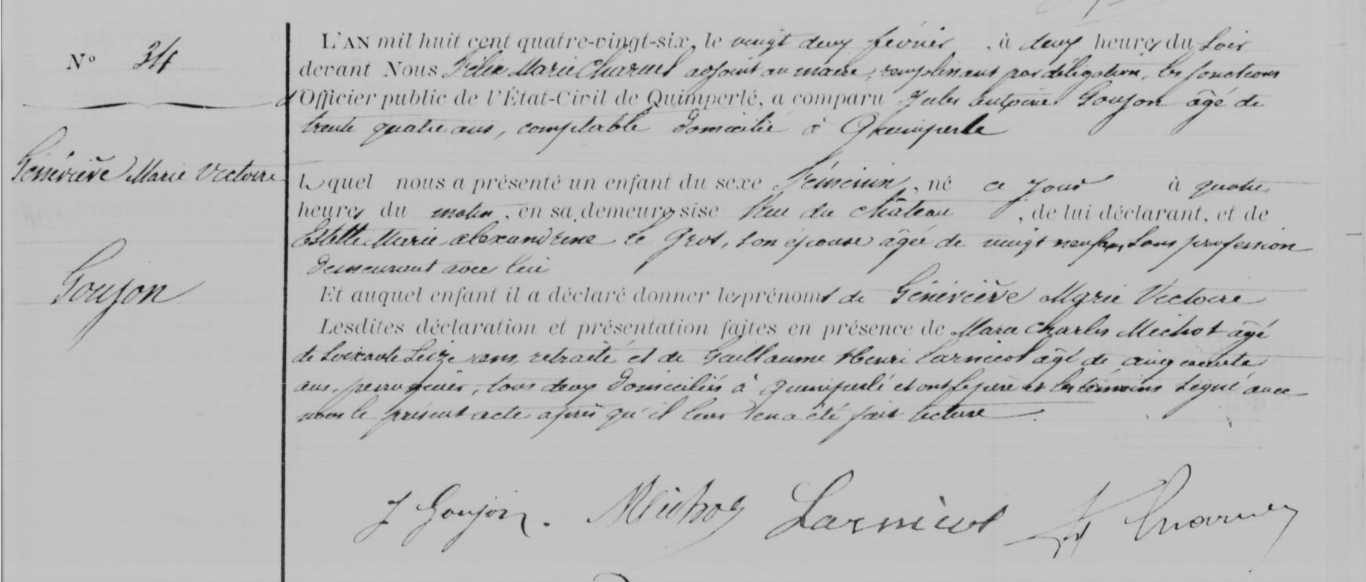 N° 34
Généviève Marie Victoire
Goujon
L'AN mil huit cent quatre-vingt-six, le vingt deux février, à deux heures du soir
devant Nous Félix Marie Charuel adjoint au maire, remplissant par délégation, les fonctions
d'Officier public de l'État-Civil de Quimperlé, a comparu Jules Antoine Goujon âgé de
trente quatre ans, comptable domicilié à Quimperlé
lequel nous a présenté un enfant du sexe féminin, né ce jour à quatre
heures du matin, en sa demeure sise Rue du Château, de lui déclarant, et de
Estelle Marie Alexandrine Le Gros, son épouse âgée de vingt neuf ans, sans profession
demeurant avec lui
Et auquel enfant il a déclaré donner les prénoms de Généviève Marie Victoire
Lesdites déclaration et présentation faites en présence de Marie Charles Michot âgé
de soixante seize ans, retraité et de Guillaume Henri Larnicol âgé de cinquante
ans, perruquier, tous deux domiciliés à Quimperlé et ont le père et les témoins signé avec
nous le présent acte après qu'il leur en a été fait lecture.
J Goujon. Michot Larnicol Charuel